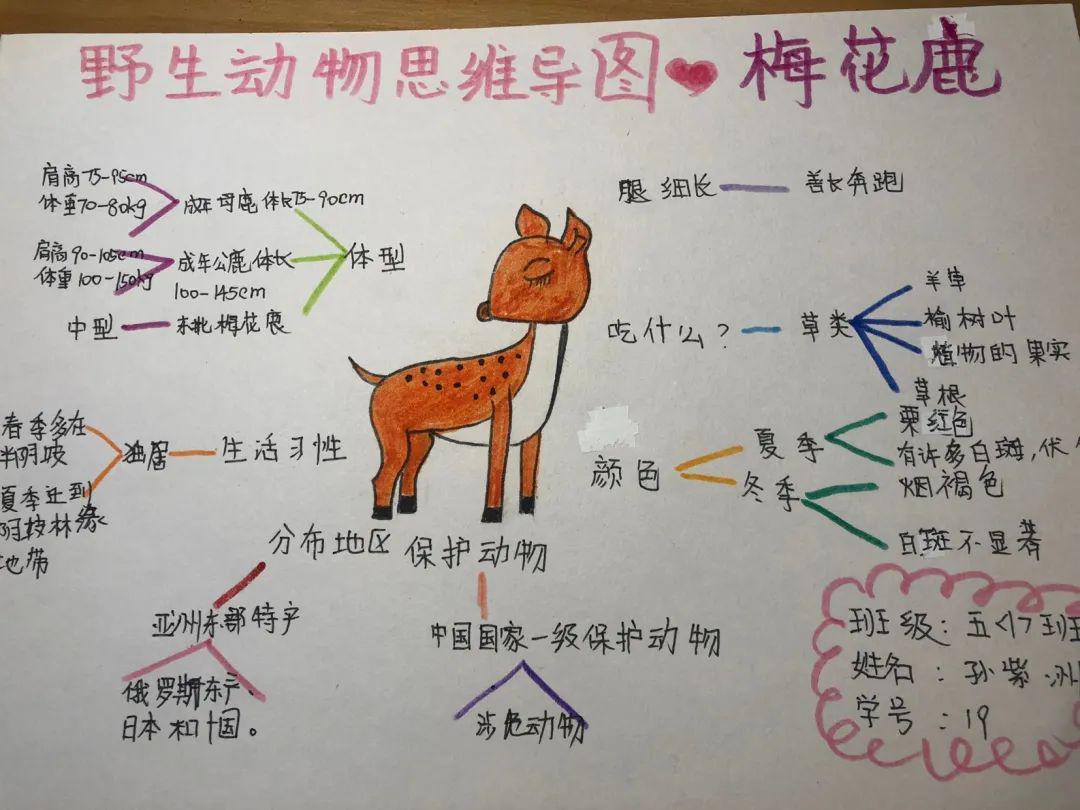 野生动物思维导图 梅花鹿
肩高75-95cm
体重70-80kg
成年母鹿体长75-90cm
肩高90-105cm
体重100-150kg
成年公鹿体长
100-145cm
中型
东北梅花鹿
体型
腿细长
善长奔跑
吃什么?
草类
羊草
榆树叶
植物的果实
草根
颜色
夏季
栗红色
有许多白斑,伏
冬季
烟褐色
白斑不显著
春季多在
半阴坡
夏季迁到
阴坡林缘
地带
生活习性
分布地区
亚洲东部特产
俄罗斯东
日本和中国。
保护动物
中国国家一级保护动物
涉危动物
班级:五<1>班
姓名:孙紫洲
学号:19